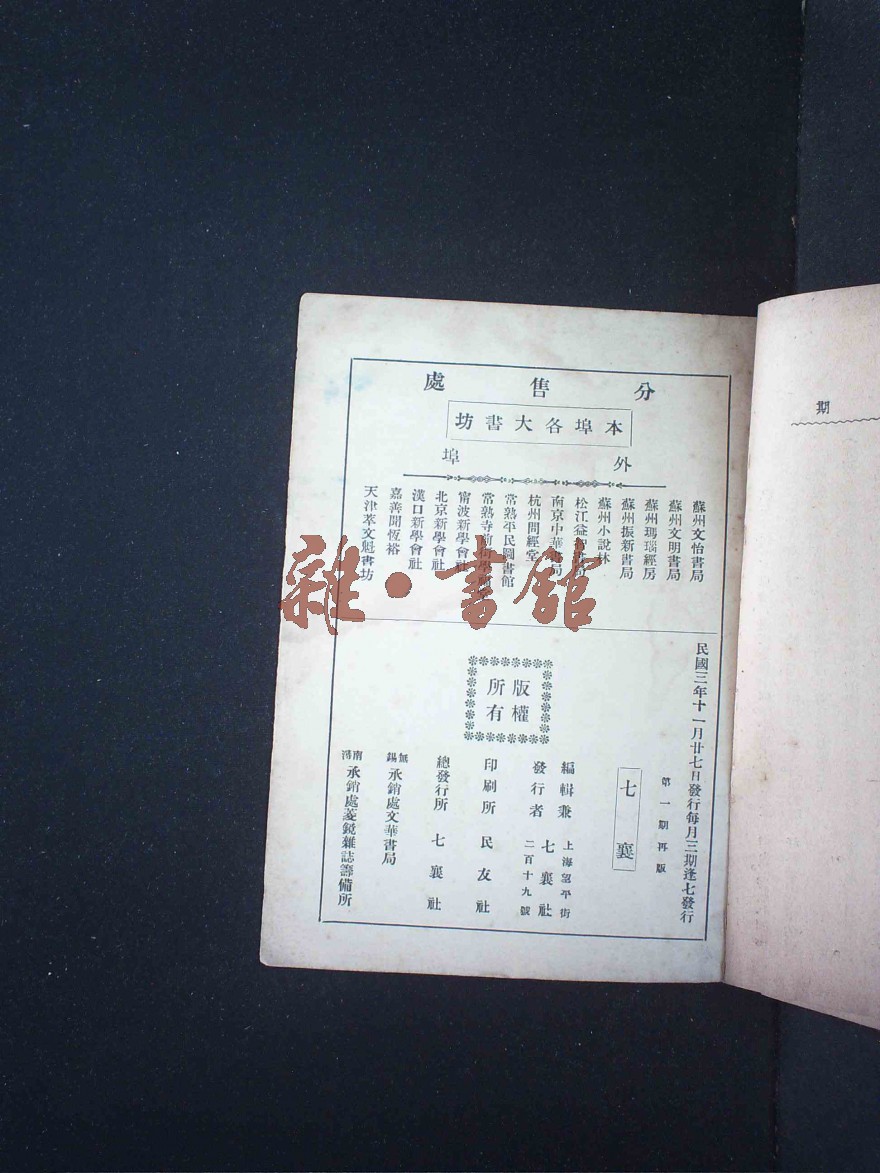 分售處
本埠各大書坊
外埠
蘇州文怡書局
蘇州文明書局
蘇州瑪瑙經房
蘇州振新書局
蘇州小說林
松江益
南京中華書局
杭州問經堂
常熟平民圖書館
常熟寺前街學
甯波新學會社
北京新學會社
漢口新學會社
嘉善開恆裕
天津萃文魁書坊
民國三年十一月廿七日發行每月三期逢七發行
第一期再版
七襄
版權所有
編輯兼發行者
上海望平街
七襄社
二百十九號
印刷所 民友社
總發行所 七襄社
無錫承銷處文華書局
南潯承銷處菱鏡雜誌籌備所
期
雜·書館